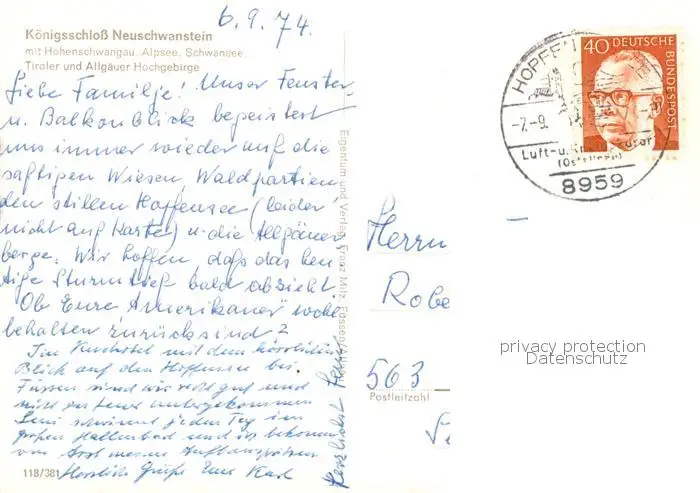 6.9.74.
Königsschloß Neuschwanstein
mit Hohenschwangau, Alpsee, Schwansee,
Tiroler und Allgäuer Hochgebirge
Liebe Familie! Unser Fenster-
u. Balkonblick begeistert
uns immer wieder auf die
saftigen Wiesen, Waldpartien,
den stillen Hopfensee (leider
nicht auf Karte) u. die Allgäuer
berge. Wir hoffen, daß das heu-
tige Sturmtief bald abzieht.
Ob Eure "Amerikaner" wohl-
behalten zurück sind?
Im Kurhotel mit dem köstlichen
Blick auf den Hopfensee bei
Füssen sind wir recht gut und
nicht zu teuer untergekommen
schwimmt jeden Tag im
großen Hallenbad und ich bekomme
vom Arzt meine
Herzliche Grüße Euer Karl
118/381
Herzlichst
Eigentum und Verlag Franz Milz, Füssen
HOPFEN
-7.-9.
Luft-u.
8959
40 DEUTSCHE
BUNDESPOST
Herrn
Robe
563
Postleitzahl
privacy protection
Datenschutz